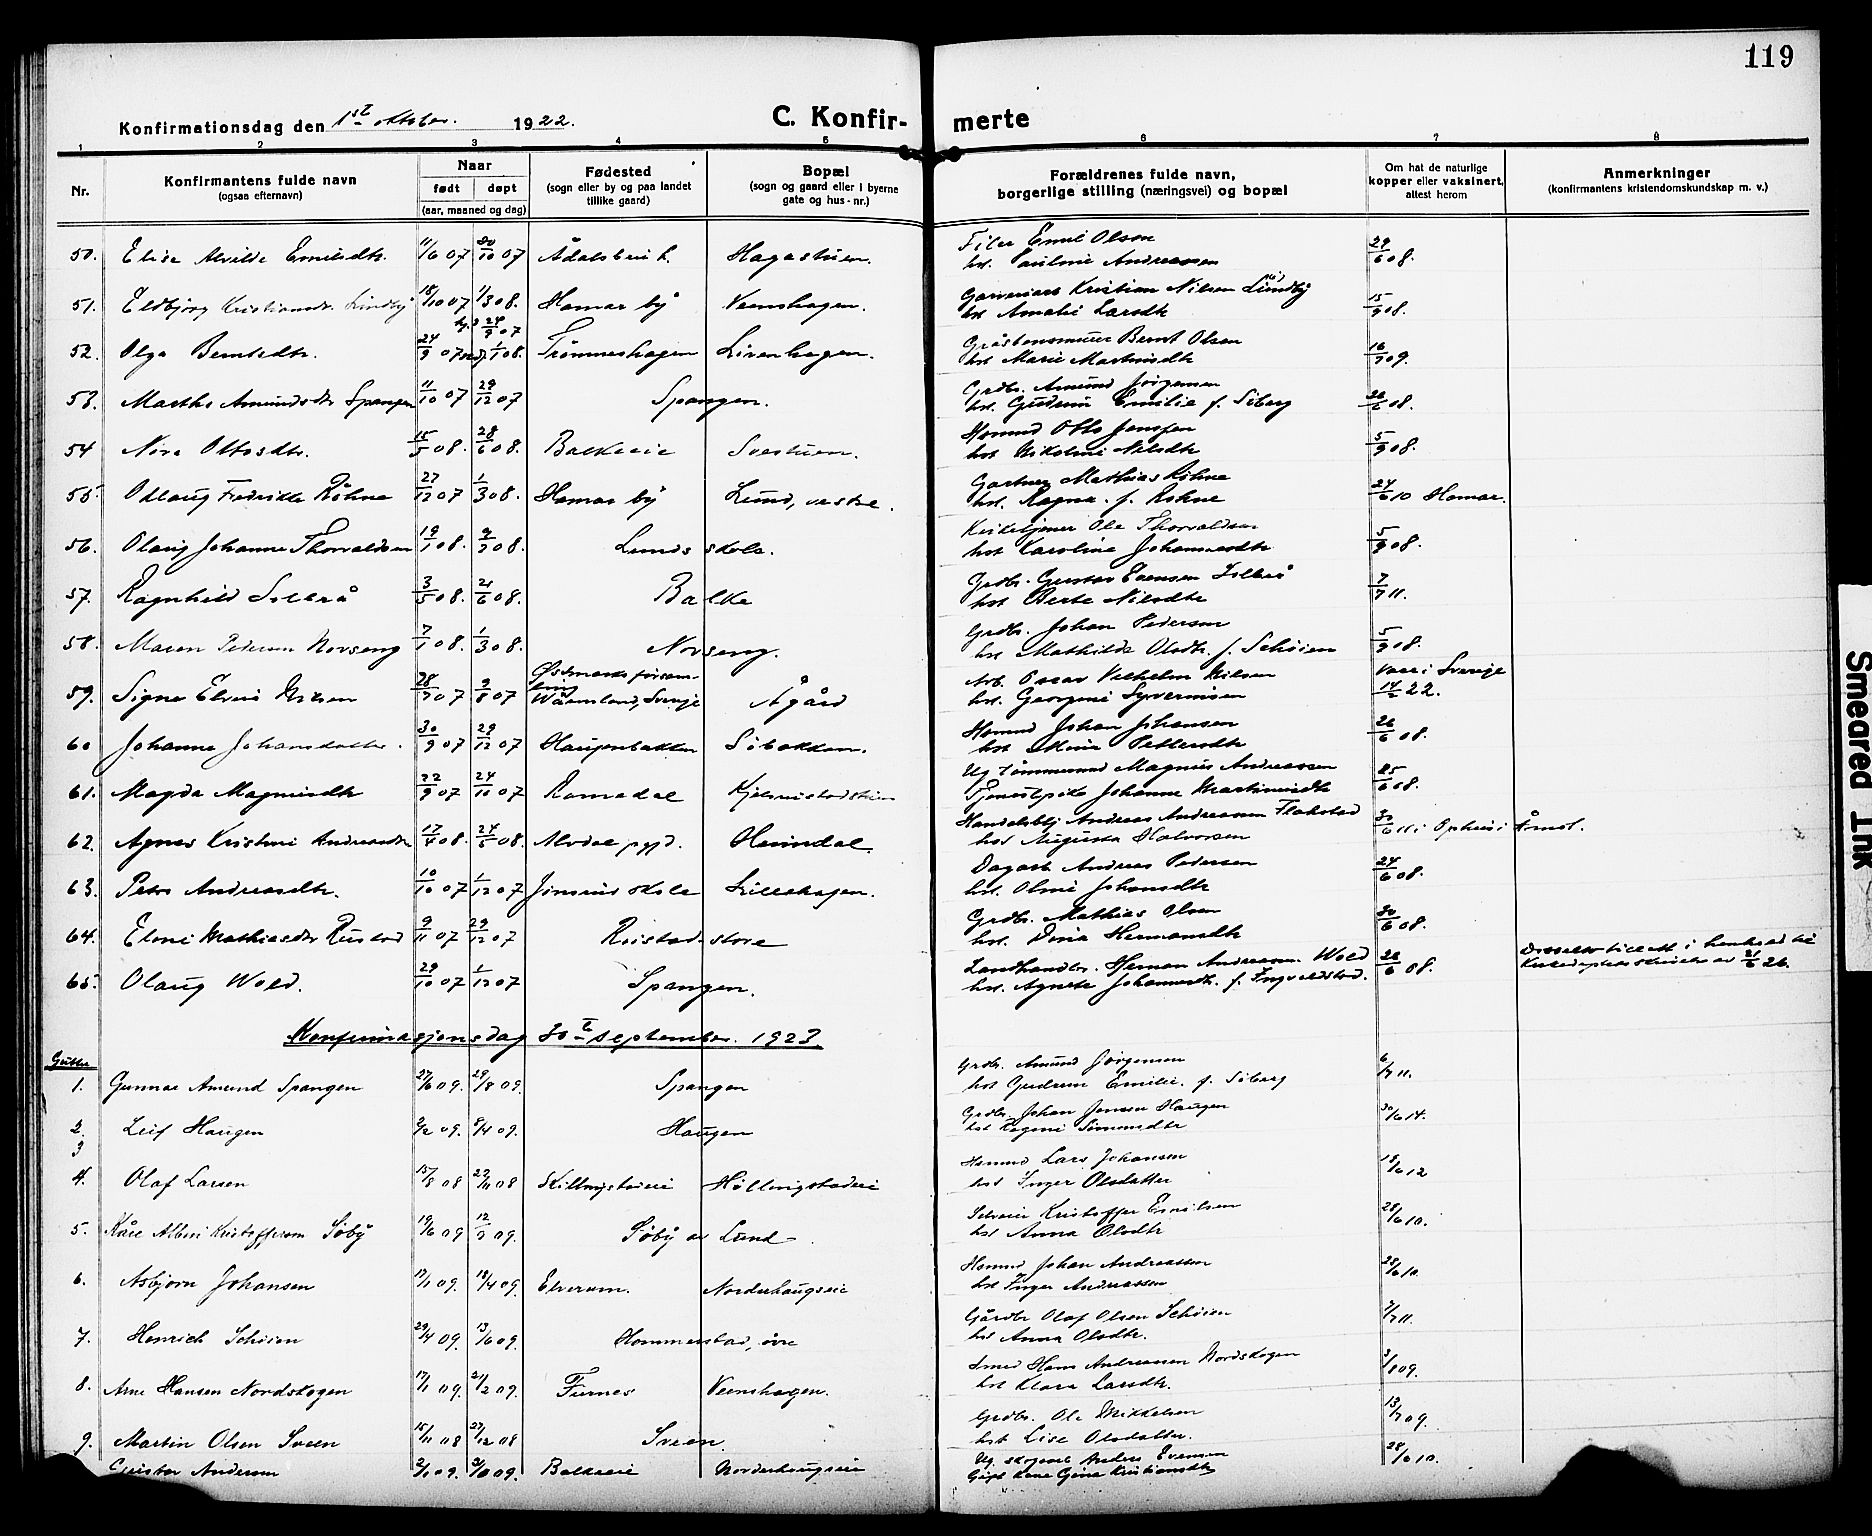 119
Konfirmationsdag den 1ste oktober. 1922. C. Konfir- merte
1 2 3 4 5 6 7 8
Nr. Konfirmantens fulde navn (ogsaa efternavn) Naar født døpt (aar, maaned og dag) Fødested (sogn eller by og paa landet tillike gaard) Bopæl (sogn og gaard eller i byerne gate og hus-nr.) Forældrenes fulde navn, borgerlige stilling (næringsvei) og bopæl Om hat de naturlige kopper eller vaksinert, attest herom Anmerkninger (konfirmantens kristendomskundskap m. v.)
50. Elise Alvilde Emilsdtr. 11/6 07 20/10 07 Ådalsbruk. Hagastuen. Filer Emil Olsen
hst. Pauline Andreassen 29/6 08.
51. Eldbjørg Kristiansdtr. Lundby 18/10 07 1/3 08. Hamar by Veenshagen. Garveriarb. Kristian Nilsen Lundby
hst Amalie Larsdtr 15/9 08.
52. Olga Berntsdtr. 24/9 07 24/9 07 1/1 08. Trømneshagen Livenhagen. Gråstensmurer Bernt Olsen
hst Marie Martinsdtr 16/7 09.
53. Martha Amundsdtr Spangen 11/10 07 29/12 07 Spangen. Grdbr. Amund Jørgensen
hst. Gudrun Emilie f. Siberg 26/6 08.
54 Nora Ottosdtr. 15/5 08. 28/6 08. Balkeeie Svestuen. Hsmnd Otto Jensen
hst Nikoline Nilsdtr 5/9 08.
55 Odlaug Fredrikke Røhne 27/12 07 1/3 08. Hamar by Lund, vestre. Gartner Mathias Røhne
hst. Ragna f. Røhne 24/6 10 Hamar.
56. Olaug Johanne Thorvaldsen 19/1 08. 9/2 08. Lunds skole. Kirketjener Ole Thorvaldsen
hst Karoline Johannesdtr 5/9 08.
57. Ragnhild Sollerå 3/5 08. 21/6 08. Balke Grdbr. Gustav Evensen Sollerå
hst Berte Nilsdtr 7/7 11.
58. Maren Pedersen Norseng 7/1 08. 1/3 08. Norseng. Grdbr. Johan Pedersen
hst Mathilde Olsdtr. f. Schøien 5/9 08.
59. Signe Elvine Nilsen 28/7 07 9/8 07 Østmarks forsamling Wärmland, Sverige Ågård Arb. Oscar Vilhelm Nilsen
hst. Georgine Syvernsen Vacc i Sverige 14/2 22.
60 Johanne Johansdatter. 30/9 07 29/12 07 Haugenbakken Sibakken. Hsmnd Johan Johansen
hst Mina Pettersdtr 26/6 08.
61. Magda Magnusdtr 22/9 07 24/10 07 Romedal Kjelmistadskien Ug tømmermd Magnus Andreassen
Tjenestpike Johanne Martinusdtr 25/6 08.
62. Agnes Kristine Andreasdtr 17/4 08. 24/5 08. Alvdal pgjd. Heimdal. Handelsbetj Andreas Andreassen Flakstad
hst Augusta Halvorsen 30/6 11 i Ophus i Åmot.
63. Petra Andreasdtr. 10/10 07 1/12 07 Jønsrud skole Lillehagen. Dagarb Andreas Pedersen
hst. Oline Johansdtr 24/6 08.
64. Eline Mathiasdtr Rustad 9/11 07 29/12 07 Rustad store Grdbr. Mathias Olsen
hst. Dina Hermansdtr 30/6 08.
65. Olaug Wold. 29/10 07 1/12 07 Spangen. Landhandler. Herman Andreassen Wold
hst. Agnete Johannesdtr. f. Ingvaldstad. 26/6 08. 21/6 26.
Konfirmasjonsdag 30te september. 1923
Gutter
1. Gunnar Amund Spangen 27/6 09. 29/8 09. Spangen Grdbr. Amund Jørgensen
hst Gudrun Emilie. f. Siberg 6/7 11.
2. Leif Haugen 9/2 09. 9/4 09. Haugen Grdbr. Johan Jensen Haugen
hst Regine Simensdtr 30/6 14.
3
4. Olaf Larsen 15/8 08 22/11 08 Hillingstadeie Hillingstadeie Hsmnd Lars Johansen
hst Inger Olsdatter 18/6 12
5. Kåre Albin Kristoffersen Søby 19/6 09 12/9 09. Søby av Lund Selveier Kristoffer Emilsen
hst Anna Olsdtr 28/6 10.
6. Asbjørn Johansen 17/1 09. 18/4 09. Elverum. Norderhaugseie Hsmnd Johan Andreassen
hst Inger Andreassen 28/6 10.
7. Henrich Schøien 29/4 09. 13/6 09. Hommerstad, øvre Gårdbr Olaf Olsen Schøien
hst Anna Olsdtr. 7/7 11.
8. Arne Hansen Nordskogen 17/1 09. 21/2 09. Furnes Veenshagen. Smed Hans Andreassen Nordskogen
hst Klara Larsdtr. 3/8 09.
9. Martin Olsen Sveen 15/11 08 27/12 08 Sveen. Grdbr. Ole Mikkelsen
hst Lise Olsdatter. 13/7 09.
Gustav Andersen 2/1 09. 31/10 09. Balkeeie Norderhaugseie Ug. skogarb Anders Evensen
Gift Lena Gina Kristiansdtr 28/6 10.
Smeared Ink